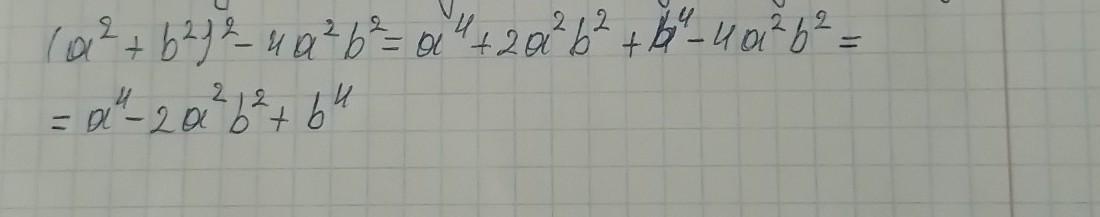 (a² + b²)² - 4a²b² = a⁴ + 2a²b² + b⁴ - 4a²b² =
= a⁴ - 2a²b² + b⁴